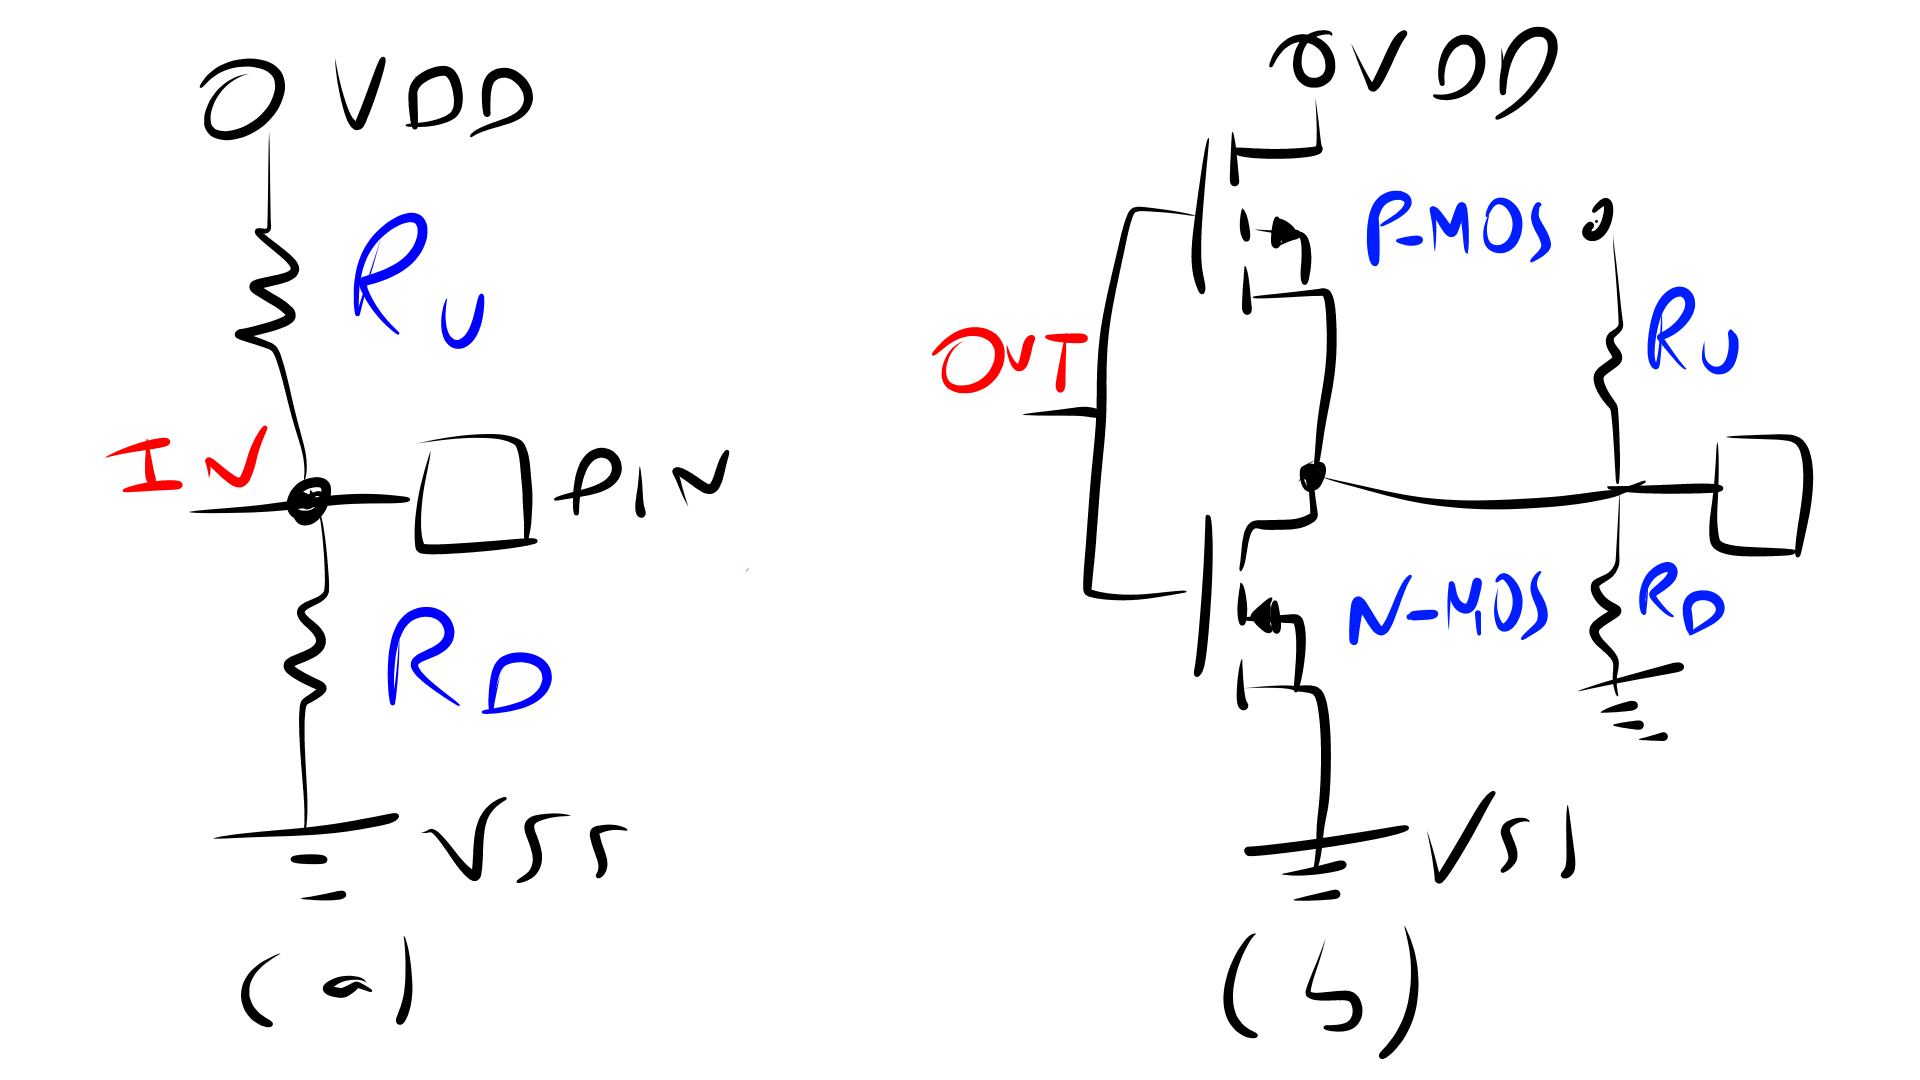 VDD
RU
IN
PIN
RD
VSS
(a)
VDD
P-MOS
RU
OUT
N-MOS
RD
VSS
(b)